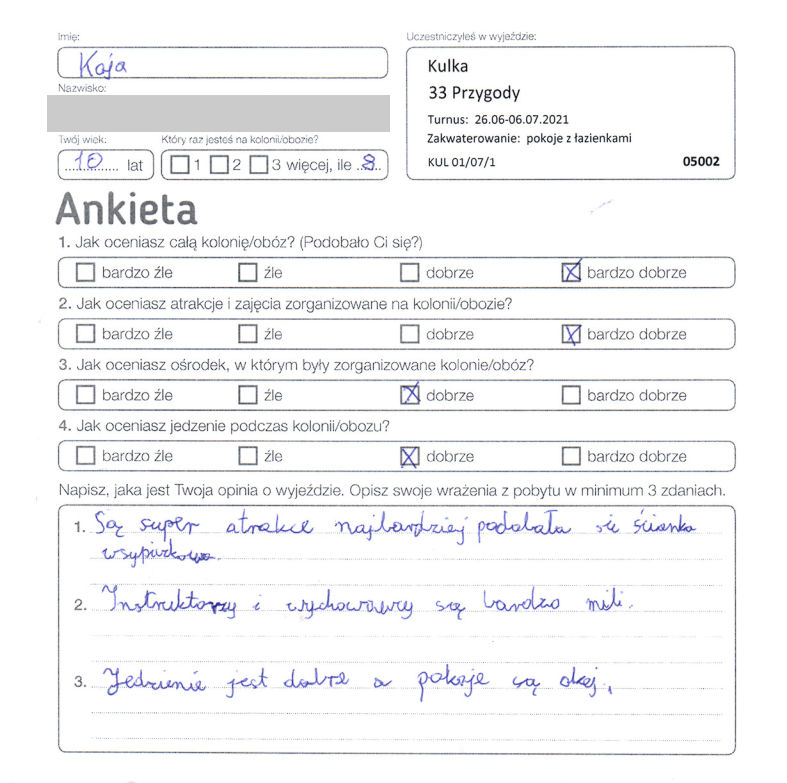 Imię:
Kaja
Nazwisko:
Twój wiek:
10 lat
Który raz jesteś na kolonii/obozie?
1 2 3 więcej, ile 8
Uczestniczyłeś w wyjeździe:
Kulka
33 Przygody
Turnus: 26.06-06.07.2021
Zakwaterowanie: pokoje z łazienkami
KUL 01/07/1 05002
Ankieta
1. Jak oceniasz całą kolonię/obóz? (Podobało Ci się?)
bardzo źle źle dobrze bardzo dobrze
2. Jak oceniasz atrakcje i zajęcia zorganizowane na kolonii/obozie?
bardzo źle źle dobrze bardzo dobrze
3. Jak oceniasz ośrodek, w którym były zorganizowane kolonie/obóz?
bardzo źle źle dobrze bardzo dobrze
4. Jak oceniasz jedzenie podczas kolonii/obozu?
bardzo źle źle dobrze bardzo dobrze
Napisz, jaka jest Twoja opinia o wyjeździe. Opisz swoje wrażenia z pobytu w minimum 3 zdaniach.
1. Są super atrakce najbardziej podobała sie ścianka
2. Instruktorzy i wychowawcy są bardzo mili.
3. Jedzienie jest dobre a pokoje są okej.